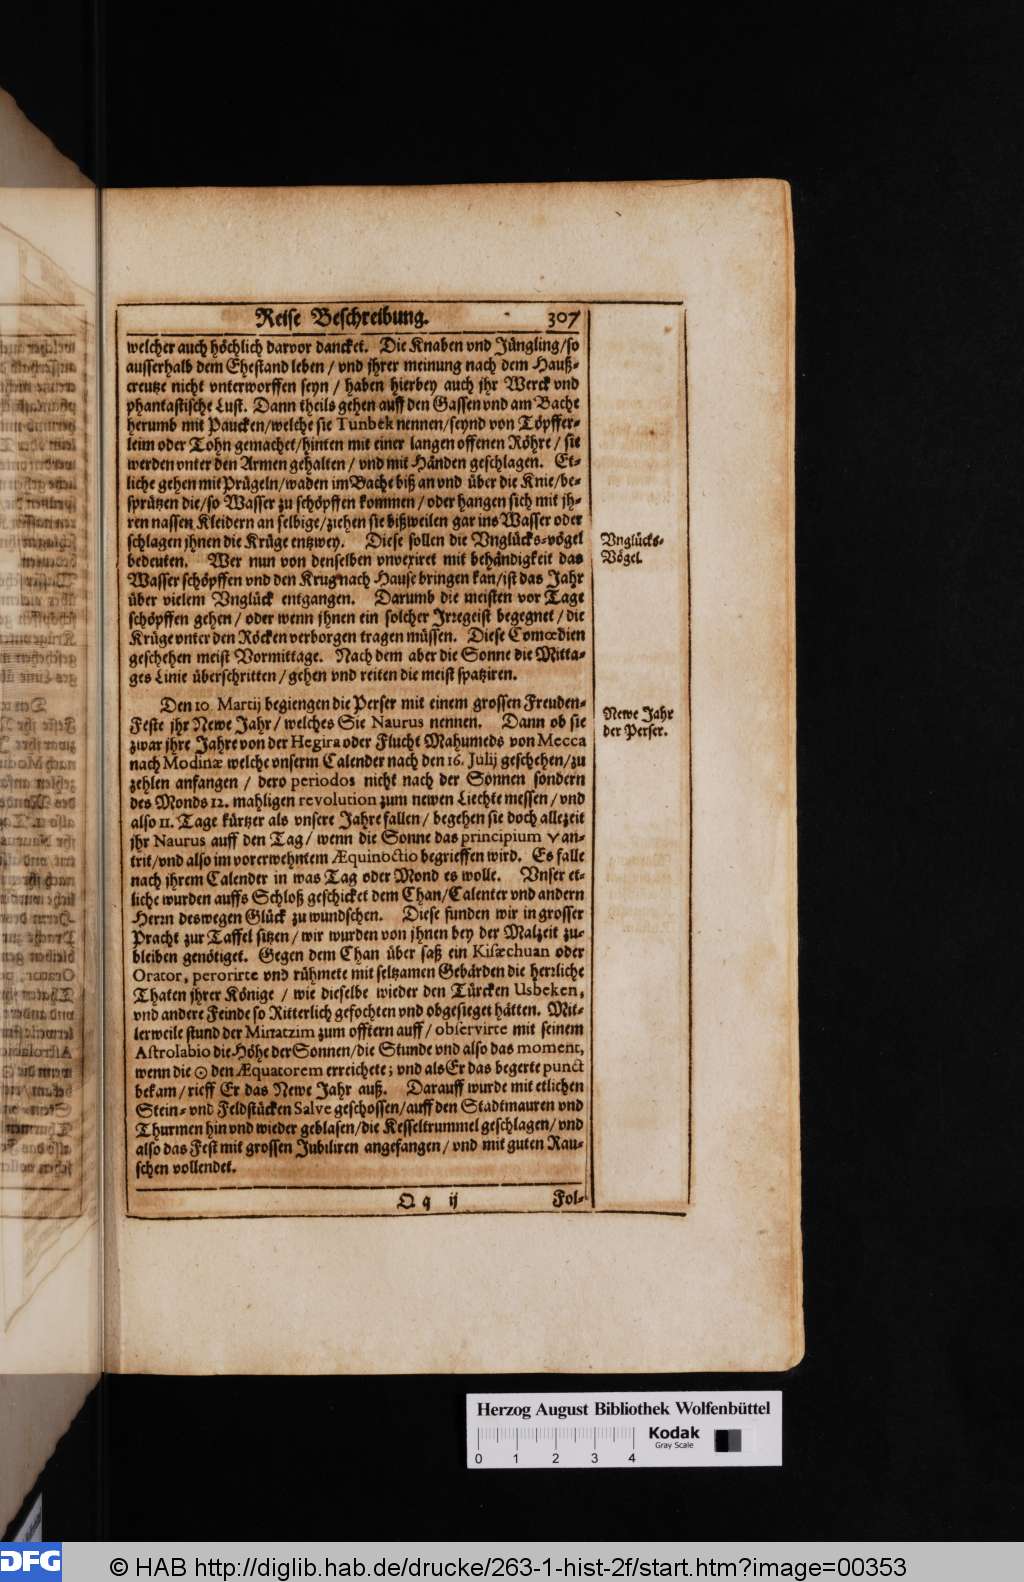 Reise Beschreibung. 307
welcher auch höchlich darvor dancket. Die Knaben vnd Jüngling/so
ausserhalb dem Ehestand leben / vnd jhrer meinung nach dem Hauß-
creutze nicht vnterworffen seyn / haben hierbey auch jhr Werck vnd
phantastische Lust. Dann theils gehen auff den Gassen vnd am Bache
herumb mit Paucken/welche sie Tunbek nennen/seynd von Töpffer-
leim oder Tohn gemachet/hinten mit einer langen offenen Röhre / sie
werden vnter den Armen gehalten / vnd mit Händen geschlagen. Et-
liche gehen mit Prügeln/waden im Bache biß an vnd über die Knie/be-
sprützen die/so Wasser zu schöpffen kommen / oder hangen sich mit jh-
ren nassen Kleidern an selbige/ziehen sie bißweilen gar ins Wasser oder
schlagen jhnen die Krüge entzwey. Diese sollen die Vnglücks-vögel
bedeuten. Wer nun von denselben vnvexiret mit behändigkeit das
Wasser schöpffen vnd den Krug nach Hause bringen kan/ist das Jahr
über vielem Vnglück entgangen. Darumb die meisten vor Tage
schöpffen gehen / oder wenn jhnen ein solcher Irrgeist begegnet / die
Krüge vnter den Röcken verborgen tragen müssen. Diese Comœdien
geschehen meist Vormittage. Nach dem aber die Sonne die Mitta-
ges Linie überschritten / gehen vnd reiten die meist spatziren.
Vnglücks-
Vögel.
Den 10 Martij begiengen die Perser mit einem grossen Freuden-
Feste jhr Newe Jahr / welches Sie Naurus nennen. Dann ob sie
zwar jhre Jahre von der Hegira oder Flucht Mahumeds von Mecca
nach Modinæ welche vnserm Calender nach den 16. Julij geschehen/zu
zehlen anfangen / dero periodos nicht nach der Sonnen sondern
des Monds 12. mahligen revolution zum newen Liechte messen / vnd
also 11. Tage kürtzer als vnsere Jahre fallen / begehen sie doch allezeit
jhr Naurus auff den Tag / wenn die Sonne das principium ♈ an-
trit/vnd also im vorerwehntem Æquinoctio begrieffen wird. Es falle
nach jhrem Calender in was Tag oder Mond es wolle. Vnser et-
liche wurden auffs Schloß geschicket dem Chan/Calenter vnd andern
Herrn deswegen Glück zu wündschen. Diese funden wir in grosser
Pracht zur Taffel sitzen / wir wurden von jhnen bey der Malzeit zu-
bleiben genötiget. Gegen dem Chan über saß ein Kisæchuan oder
Orator, perorirte vnd rühmete mit seltzamen Gebärden die herrliche
Thaten jhrer Könige / wie dieselbe wieder den Türcken Usbeken,
vnd andere Feinde so Ritterlich gefochten vnd obgesieget hätten. Mit-
lerweile stund der Minatzim zum offtern auff / observirte mit seinem
Astrolabio die Höhe der Sonnen/die Stunde vnd also das moment,
wenn die ☉ den Æquatorem erreichete; vnd als Er das begerte punct
bekam / rieff Er das Newe Jahr auß. Darauff wurde mit etlichen
Stein- vnd Feldstücken Salve geschossen/auff den Stadtmauren vnd
Thurmen hin vnd wieder geblasen/die Kesseltrummel geschlagen/ vnd
also das Fest mit grossen Jubiliren angefangen / vnd mit guten Rau-
schen vollendet.
Newe Jahr
der Perser.
Q q ij Fol-
Herzog August Bibliothek Wolfenbüttel
Kodak
Gray Scale
0 1 2 3 4
DFG © HAB http://diglib.hab.de/drucke/263-1-hist-2f/start.htm?image=00353